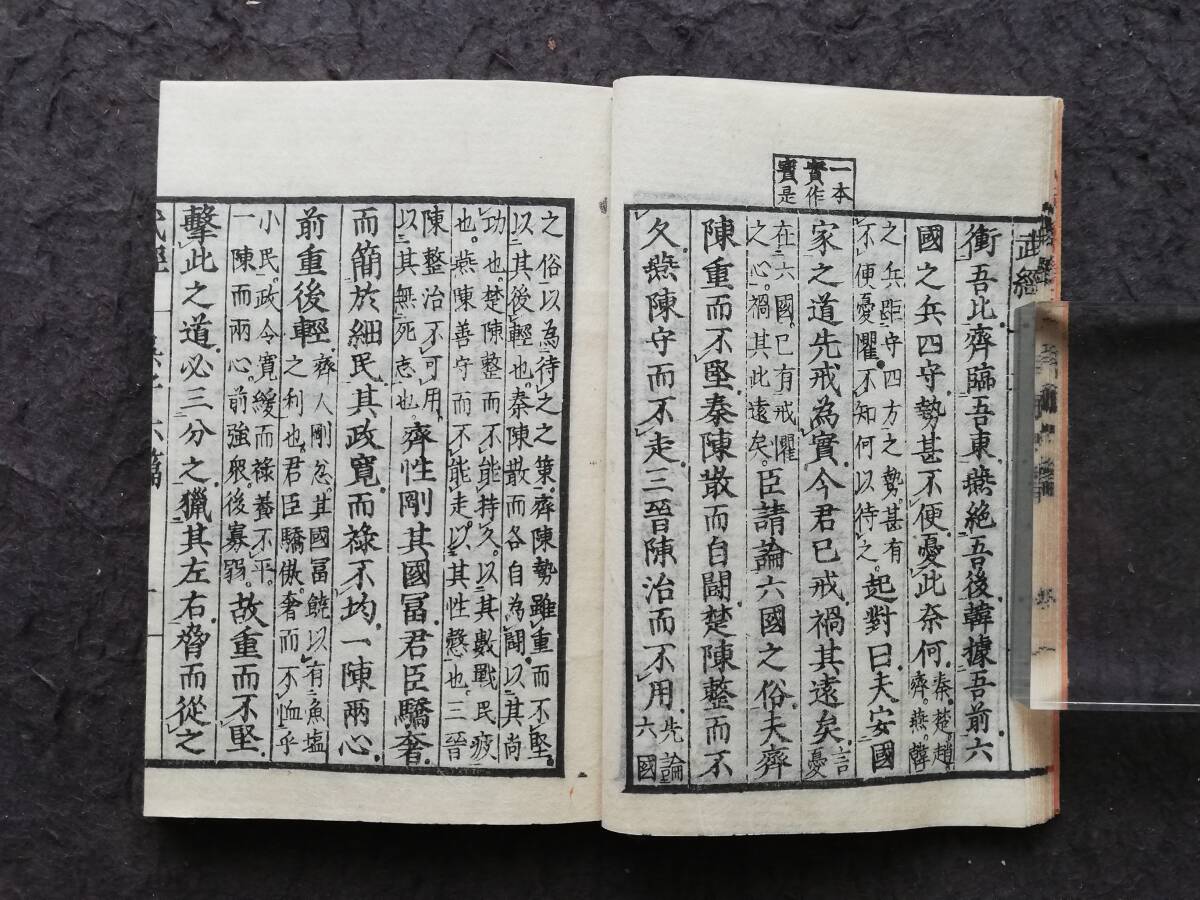 一本
實作
寶是
武經
衝吾北齊臨吾東燕絶吾後韓據吾前六
國之兵四守勢甚不便憂此奈何秦。楚。趙。
齊。燕。韓
之兵距守四方之勢。甚有
不便憂懼。不知何以待之。起對曰夫安國
家之道先戒為實今君已戒禍其遠矣言
憂
在六國。已有戒懼
之心。禍其此遠矣。臣請論六國之俗夫齊
陳重而不堅秦陳散而自鬪楚陳整而不
久燕陳守而不走三晉陳治而不用先論
六國
之俗。以為待之之策。齊陳勢雖重而不堅。
以其後輕也。秦陳散而各自為鬪。以其尚
功也。楚陳整而不能持久。以其數戰民疲
也。燕陳善守而不能走。以其性慤也。三晉
陳整治不可用。
以其無死志也。齊性剛其國冨君臣驕奢
而簡於細民其政寬而祿不均一陳兩心
前重後輕齊人剛忿其國冨饒。以有魚塩
之利也。君臣驕傲。奢而不恤乎
小民。政令寬緩而祿養不平。
一陳而兩心。前強衆。後寡弱。故重而不堅
擊此之道必三分之獵其左右脅而從之